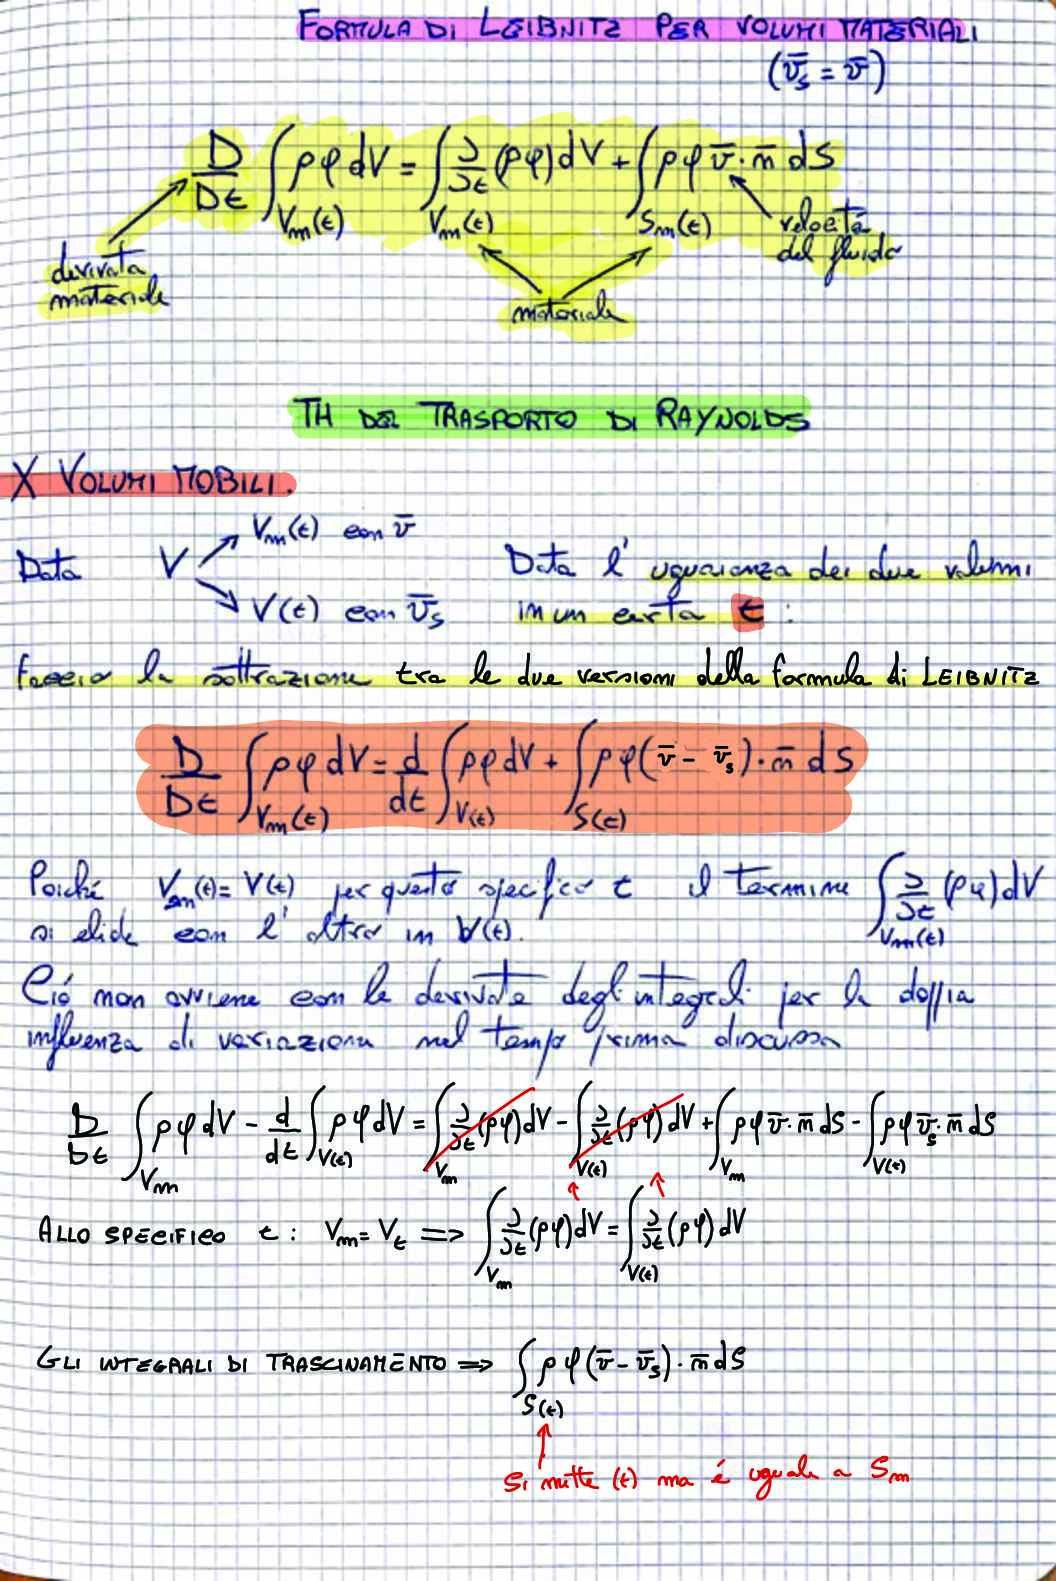 FORMULA DI LEIBNITZ PER VOLUMI MATERIALI
(v̄ₛ = v̄)
D/Dt ∫_{Vm(t)} ρφ dV = ∫_{Vm(t)} ∂/∂t (ρφ) dV + ∫_{Sm(t)} ρφ v̄ · n̄ dS
derivata materiale
materiale
velocità del fluido
TH DEL TRASPORTO DI RAYNOLDS
X VOLUMI MOBILI.
Data V
Vm(t) con v̄
V(t) con v̄ₛ
Data l' uguaianza dei due volumi
in un certo t :
Faccio la sottrazione tra le due versioni della formula di LEIBNITZ
D/Dt ∫_{Vm(t)} ρφ dV = d/dt ∫_{V(t)} ρφ dV + ∫_{S(t)} ρφ (v̄ - v̄ₛ) · n̄ dS
Poiché Vm(t) = V(t) per questo specifico t il termine ∫_{Vm(t)} ∂/∂t (ρφ) dV
si elide con l' altro in V(t).
Ció non avviene con le derivate degli integrali per la doppia
influenza di variazione nel tempo prima discussa
D/Dt ∫_{Vm} ρφ dV - d/dt ∫_{V(t)} ρφ dV = ∫_{Vm} ∂/∂t (ρφ) dV - ∫_{V(t)} ∂/∂t (ρφ) dV + ∫_{Vm} ρφ v̄ · n̄ dS - ∫_{V(t)} ρφ v̄ₛ · n̄ dS
ALLO SPECIFICO t : Vm = Vt ⟹ ∫_{Vm} ∂/∂t (ρφ) dV = ∫_{V(t)} ∂/∂t (ρφ) dV
GLI INTEGRALI DI TRASCINAMENTO ⟹ ∫_{S(t)} ρφ (v̄ - v̄ₛ) · n̄ dS
Si mette (t) ma é uguale a Sm